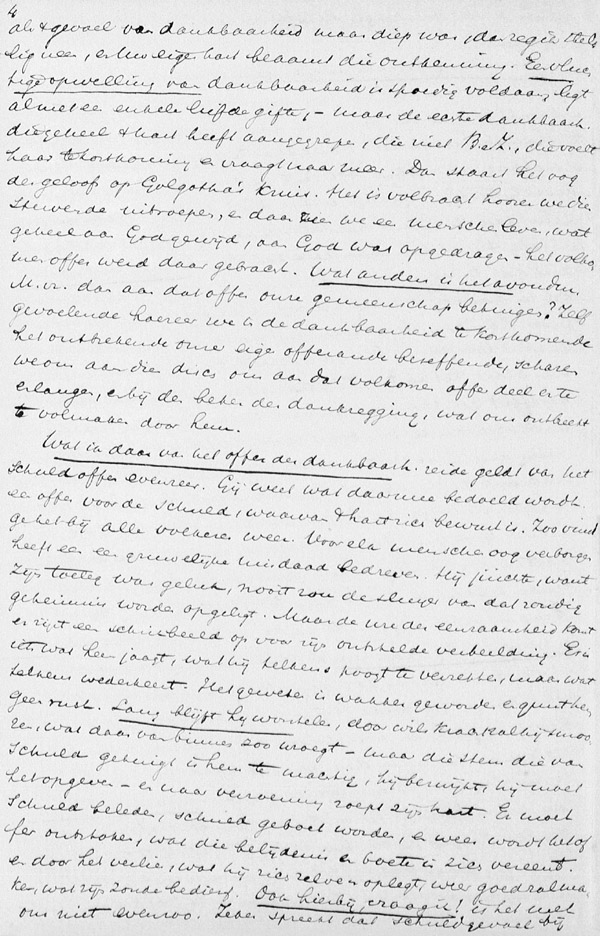 4
als 't gevoel van dankbaarheid maar diep was, dan regelt
zich neer, en uw eigen hart beaamt die ontkenning. Een vluch
tige opwelling van dankbaarheid is spoedig voldaan, ligt
al met een enkele liefdegifte, – maar de echte dankbaarh.
die geheel 't hart heeft aangegrepen, die niet B. e. Z., die voelt
haar tekortkoming en vraagt naar meer. Dan staart het oog
des geloofs op Golgotha's kruis. Het is volbracht hooren we den
stervende uitroepen, en daar zien we een menschenleven, wat
geheel aan God gewijd, aan God was opgedragen – het volko
men offer werd daar gebracht. Wat anders is het avondm.
M. vr. dan aan dat offer onze gemeenschap betuigen? Zelf
gevoelende hoezeer we in de dankbaarheid te kort komen en
het ontbrekende onzer eigen offerande beseffende, scharen
we ons aan den disch om aan dat volkomen offer deel te
erlangen, en bij den beker der dankzegging, wat ons ontbreekt
te volmaken door hem.
Wat in daar van het offer der dankbaarh. reide geldt van het
schuldoffer evenzeer. Gij weet wat daarmee bedoeld wordt.
een offer voor de schuld, waarvan 't hart zich bewust is. Zoo vind
ge het bij alle volkeren weer. Voor elk menschenoog verborgen
heeft een een gruwelijke misdaad bedreven. Hij juichte, want
zijn toeleg was gelukt, nooit zou de sluier van dat zondig
geheimnis worden opgeligt. Maar de uren der eenzaamheid komt
er rijst een schrikbeeld op voor zijn ontstelde verbeelding. Er is
iets wat hem jaagt, wat hij telkens poogt te verzetten, maar wat
telkens wederkeert. Het geweten is wakker geworden en gunt hem
geen rust. Lang blijft hij worstelen, door wilskracht zal hij smoo
ren, wat daar van binnen zoo vraagt – maar die stem die van
schuld getuigt is hem te machtig, hij bezwijkt, hij moet
het opgeven – en naar verzoening roept zijn hart. Er moet
schuld beleden, schuld geboet worden, en weer wordt het of
fer ontstoken, wat die belijdenis en boete in zich vereent.
en door het verlies, wat hij zich zelven oplegt, weer goed zal ma
ken, wat zijn zonde bedierf. Ook hierbij, vraag ik! is het met
ons niet evenzoo. Zeker spreekt dat schuldgevoel bij